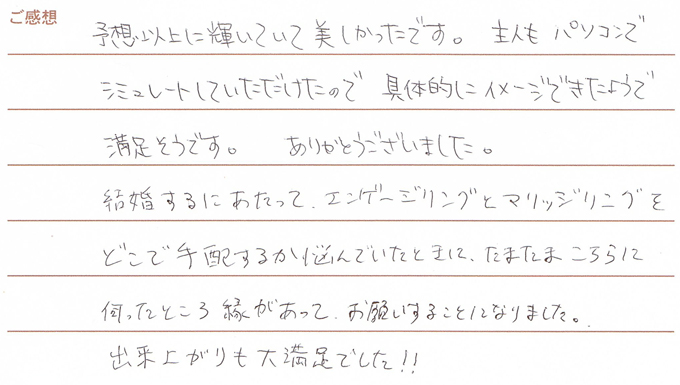 ご感想
予想以上に輝いていて美しかったです。 主人もパソコンで
シミュレートしていただけたので 具体的にイメージできたようで
満足そうです。 ありがとうございました。
結婚するにあたって、エンゲージリングとマリッジリングを
どこで手配するか悩んでいたときに、たまたまこちらに
伺ったところ縁があって、お願いすることになりました。
出来上がりも大満足でした!!